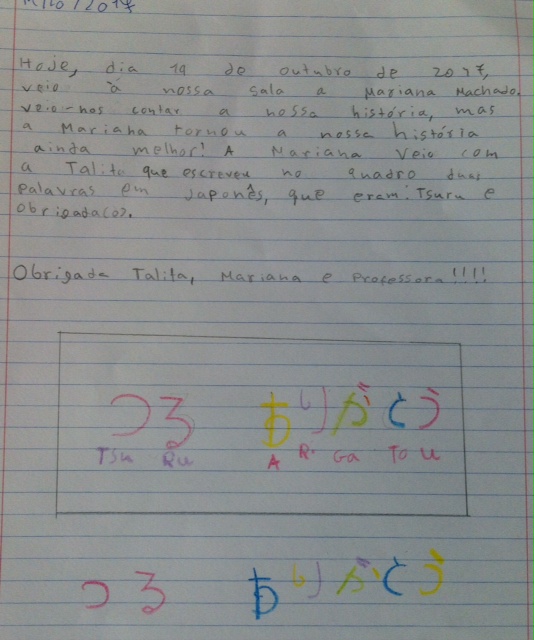 Hoje, dia 19 de outubro de 2017,
veio à nossa sala a Mariana Machado.
veio-nos contar a nossa história, mas
a Mariana tornou a nossa história
ainda melhor! A Mariana veio com
a Talita que escreveu no quadro duas
palavras em japonês, que eram: Tsuru e
obrigada(o).
Obrigada Talita, Mariana e Professora!!!!
つる ありがとう
Tsu Ru A Ri Ga To U
つる ありがとう